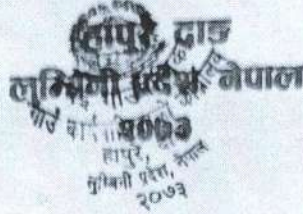 हापुरे, दाङ
लुम्बिनी प्रदेश, नेपाल
गाउँ कार्य
२०७३
हापुरे,
लुम्बिनी प्रदेश, नेपाल
२०७३